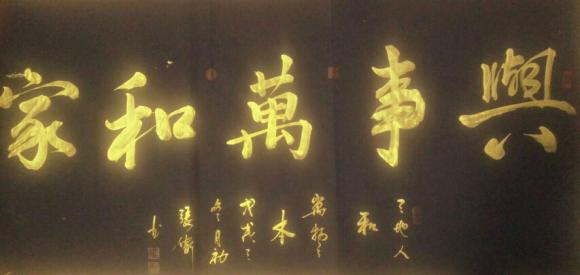 家和萬事興
天地人
和
萬物之
本
戊戌之
冬月初
書